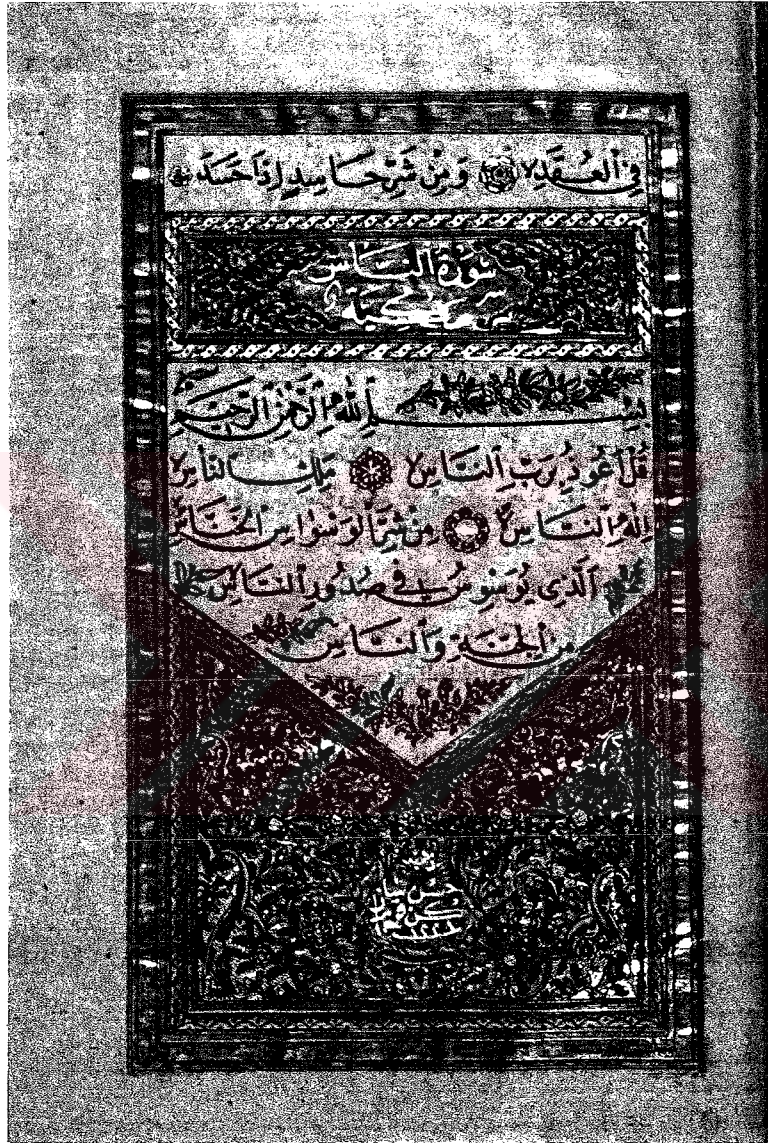 فِي الْعُقَدِ ۝ وَمِنْ شَرِّ حَاسِدٍ إِذَا حَسَدَ
سُورَةُ النَّاسِ
مَكِّيَّة
بِسْمِ اللَّهِ الرَّحْمَٰنِ الرَّحِيمِ
قُلْ أَعُوذُ بِرَبِّ النَّاسِ ۝ مَلِكِ النَّاسِ
إِلَٰهِ النَّاسِ ۝ مِنْ شَرِّ الْوَسْوَاسِ الْخَنَّاسِ
الَّذِي يُوَسْوِسُ فِي صُدُورِ النَّاسِ
مِنَ الْجِنَّةِ وَالنَّاسِ